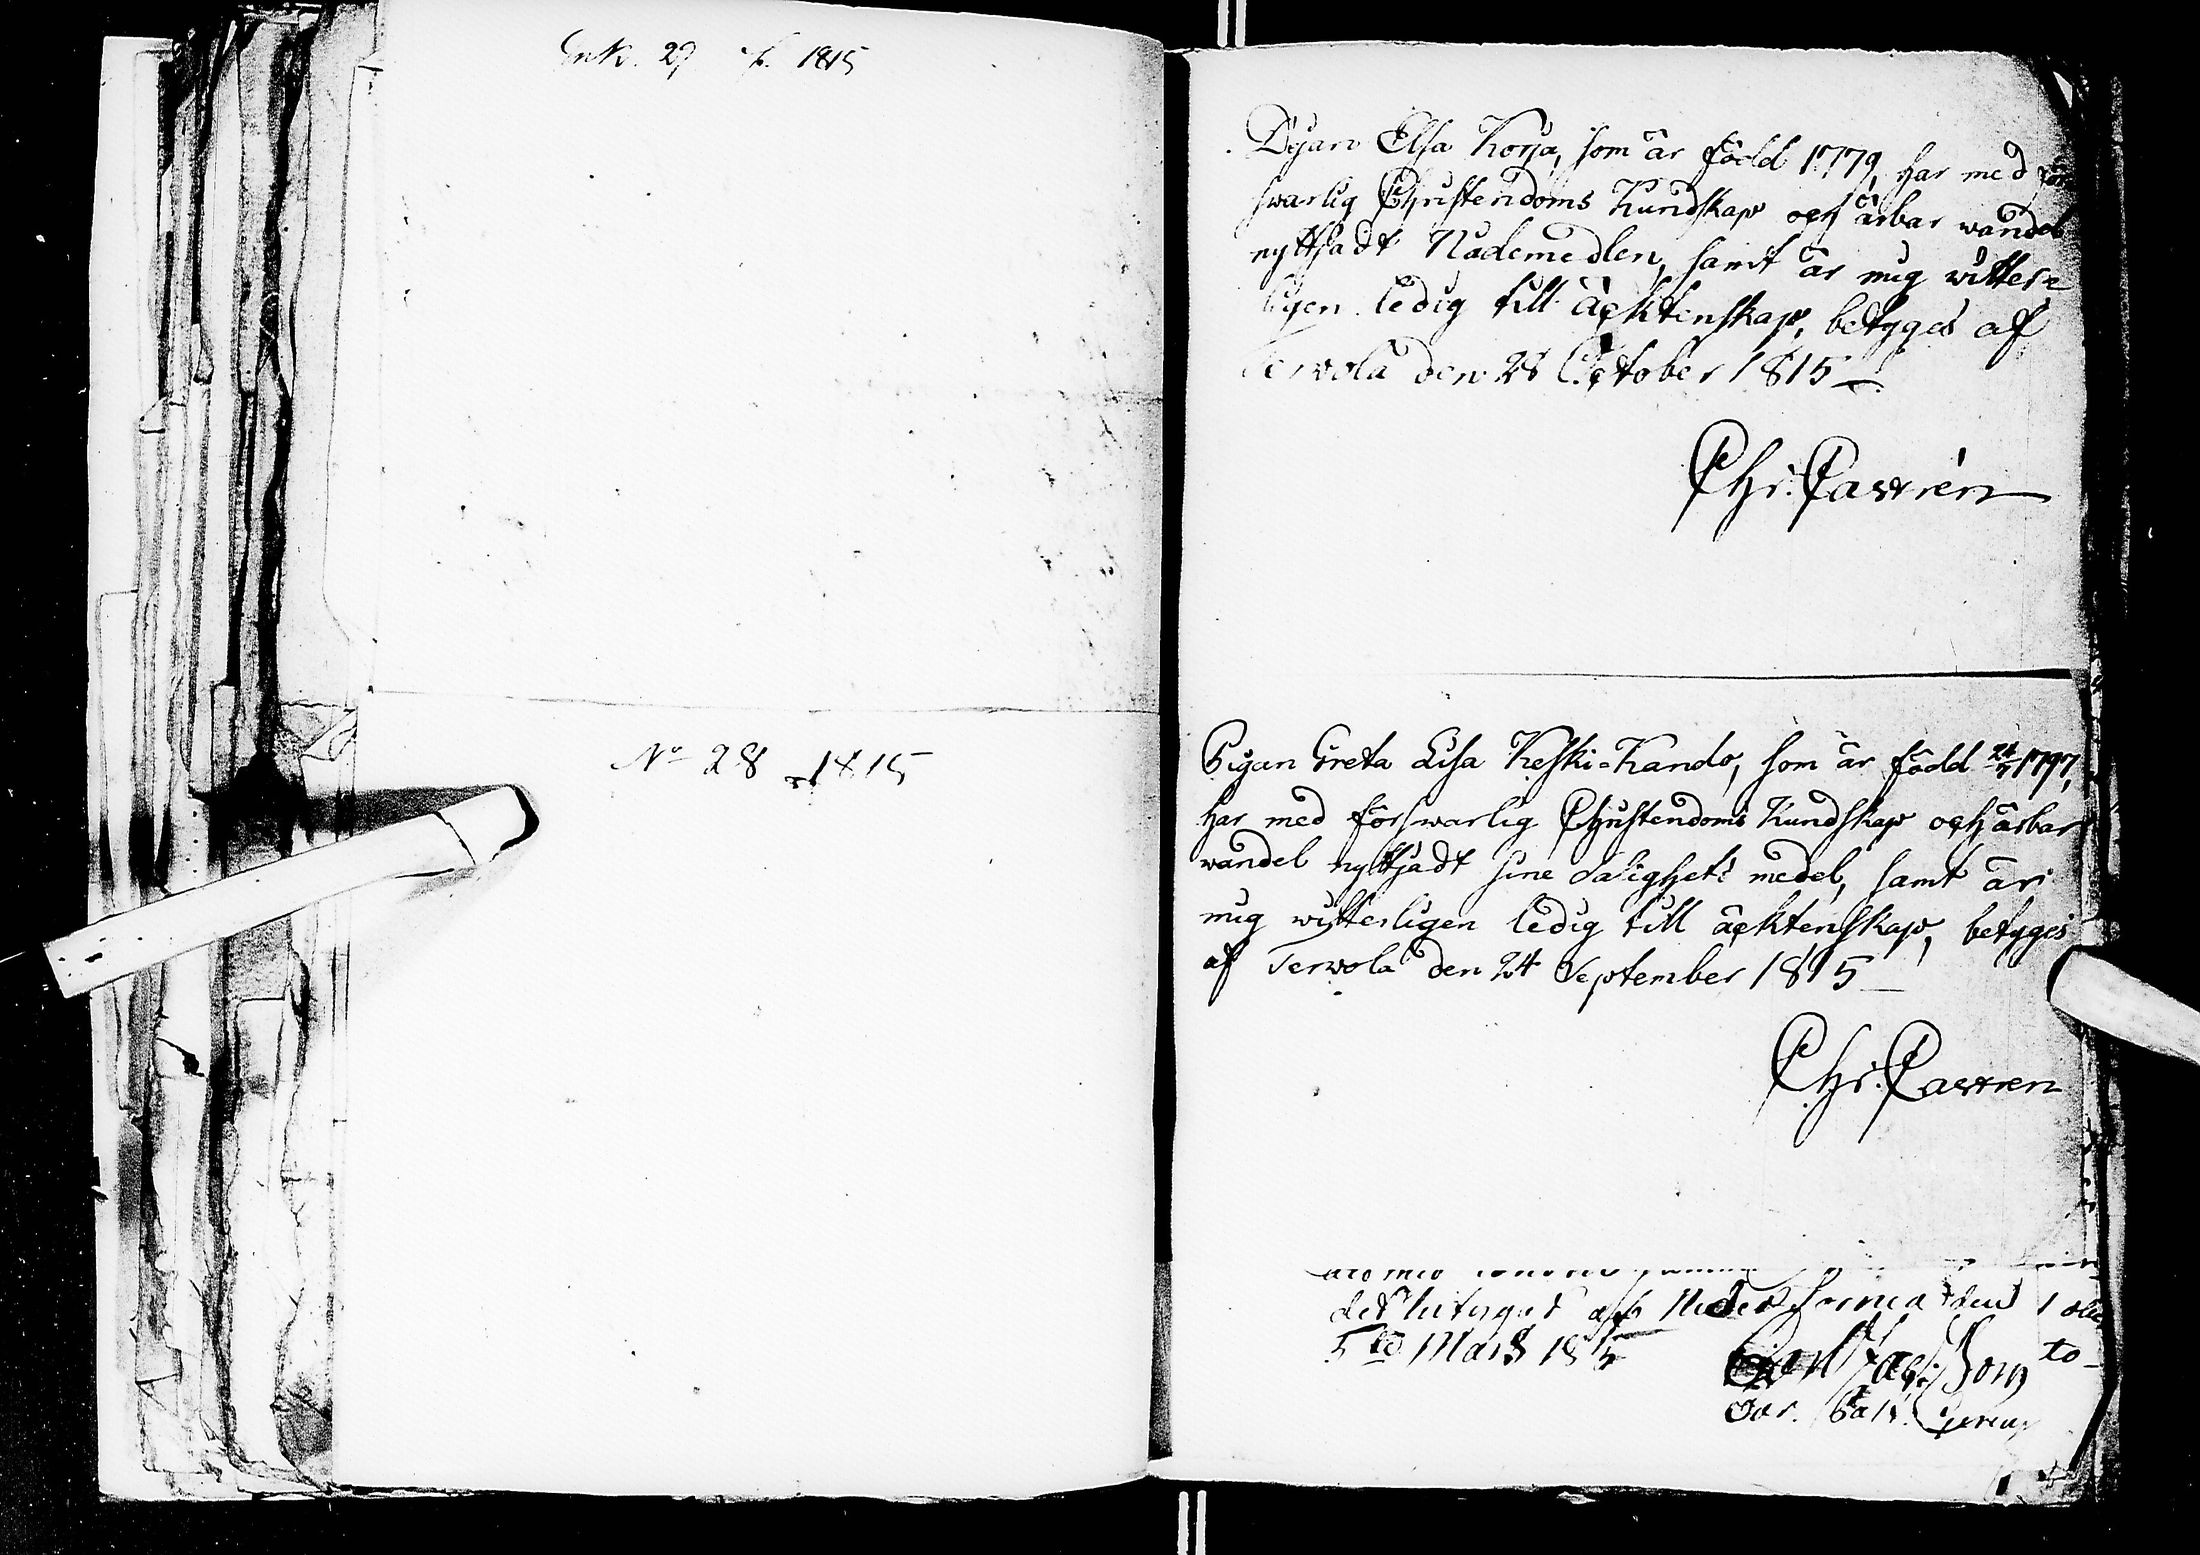 Ink. 27 f. 1815
No 28 1815
Pigan Elsa Korja, som är född 1779, har med för
swarlig Christendoms Kundskap och ärbar wandel
nyttjadt Nademedlen, samt är mig witter-
ligen ledig till ächtenskap, betyges af
Terwola den 28 October 1815
Chr. Castrén
Pigan Greta Lisa Keski-Kando, som är född 24/7 1797,
har med förswarlig Christendoms Kundskap och ärbar
wandel nyttjadt sine Salighets medel, samt är
mig witterligen ledig till ächtenskap, betyges
af Terwola den 24 September 1815
Chr. Castren
det Neder Tornea den 1
5 Mars 1815
Carl Jac. Borg